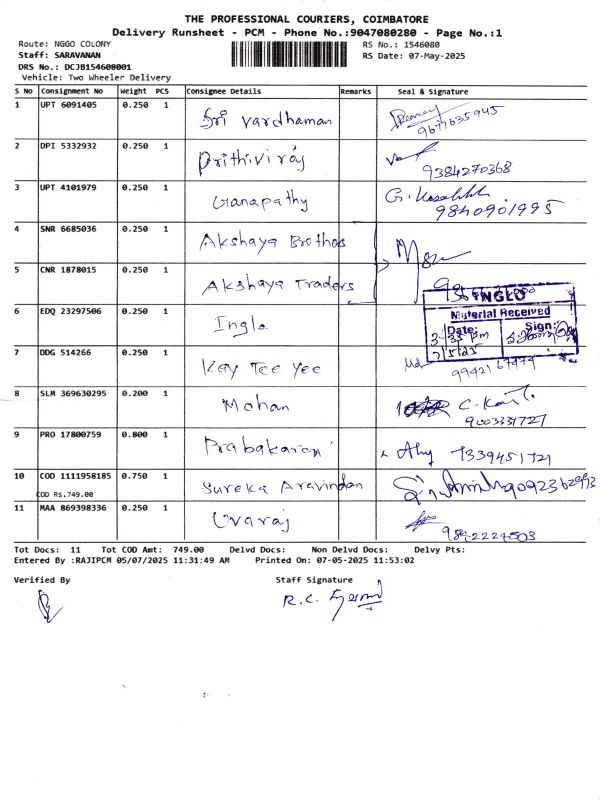 THE PROFESSIONAL COURIERS, COIMBATORE
Delivery Runsheet - PCM - Phone No.:9047080280 - Page No.:1
Route: NGGO COLONY
RS No.: 1546080
Staff: SARAVANAN
RS Date: 07-May-2025
DRS No.: DCJB154608001
Vehicle: Two Wheeler Delivery
S No Consignment No Weight PCS Consignee Details Remarks Seal & Signature
1 UPT 6091405 0.250 1 Sri Vardhaman
9677635945
2 DPI 5332932 0.250 1 Prithiviraj
9384270368
3 UPT 4101979 0.250 1 Ganapathy G.
9840901995
4 SNR 6685036 0.250 1 Akshaya Brothos
5 CNR 1878015 0.250 1 Akshaya Traders
6 EDQ 23297506 0.250 1 Inglo
INGLO
Material Received
Date: Sign:
7 DDG 514266 0.250 1 Kay Tee yee
8 SLM 369630295 0.200 1 Mohan C.
9003331727
9 PRO 17800759 0.800 1 Prabakaran
7339451721
10 COD 1111958185 0.750 1 Sureka Aravindan
9092362993
COD RS.749.00
11 MAA 869398336 0.250 1 Uvaraj
9842224503
Tot Docs: 11 Tot COD Amt: 749.00 Delvd Docs: Non Delvd Docs: Delvy Pts:
Entered By :RAJIPCM 05/07/2025 11:31:49 AM Printed On: 07-05-2025 11:53:02
Verified By Staff Signature
R.C.